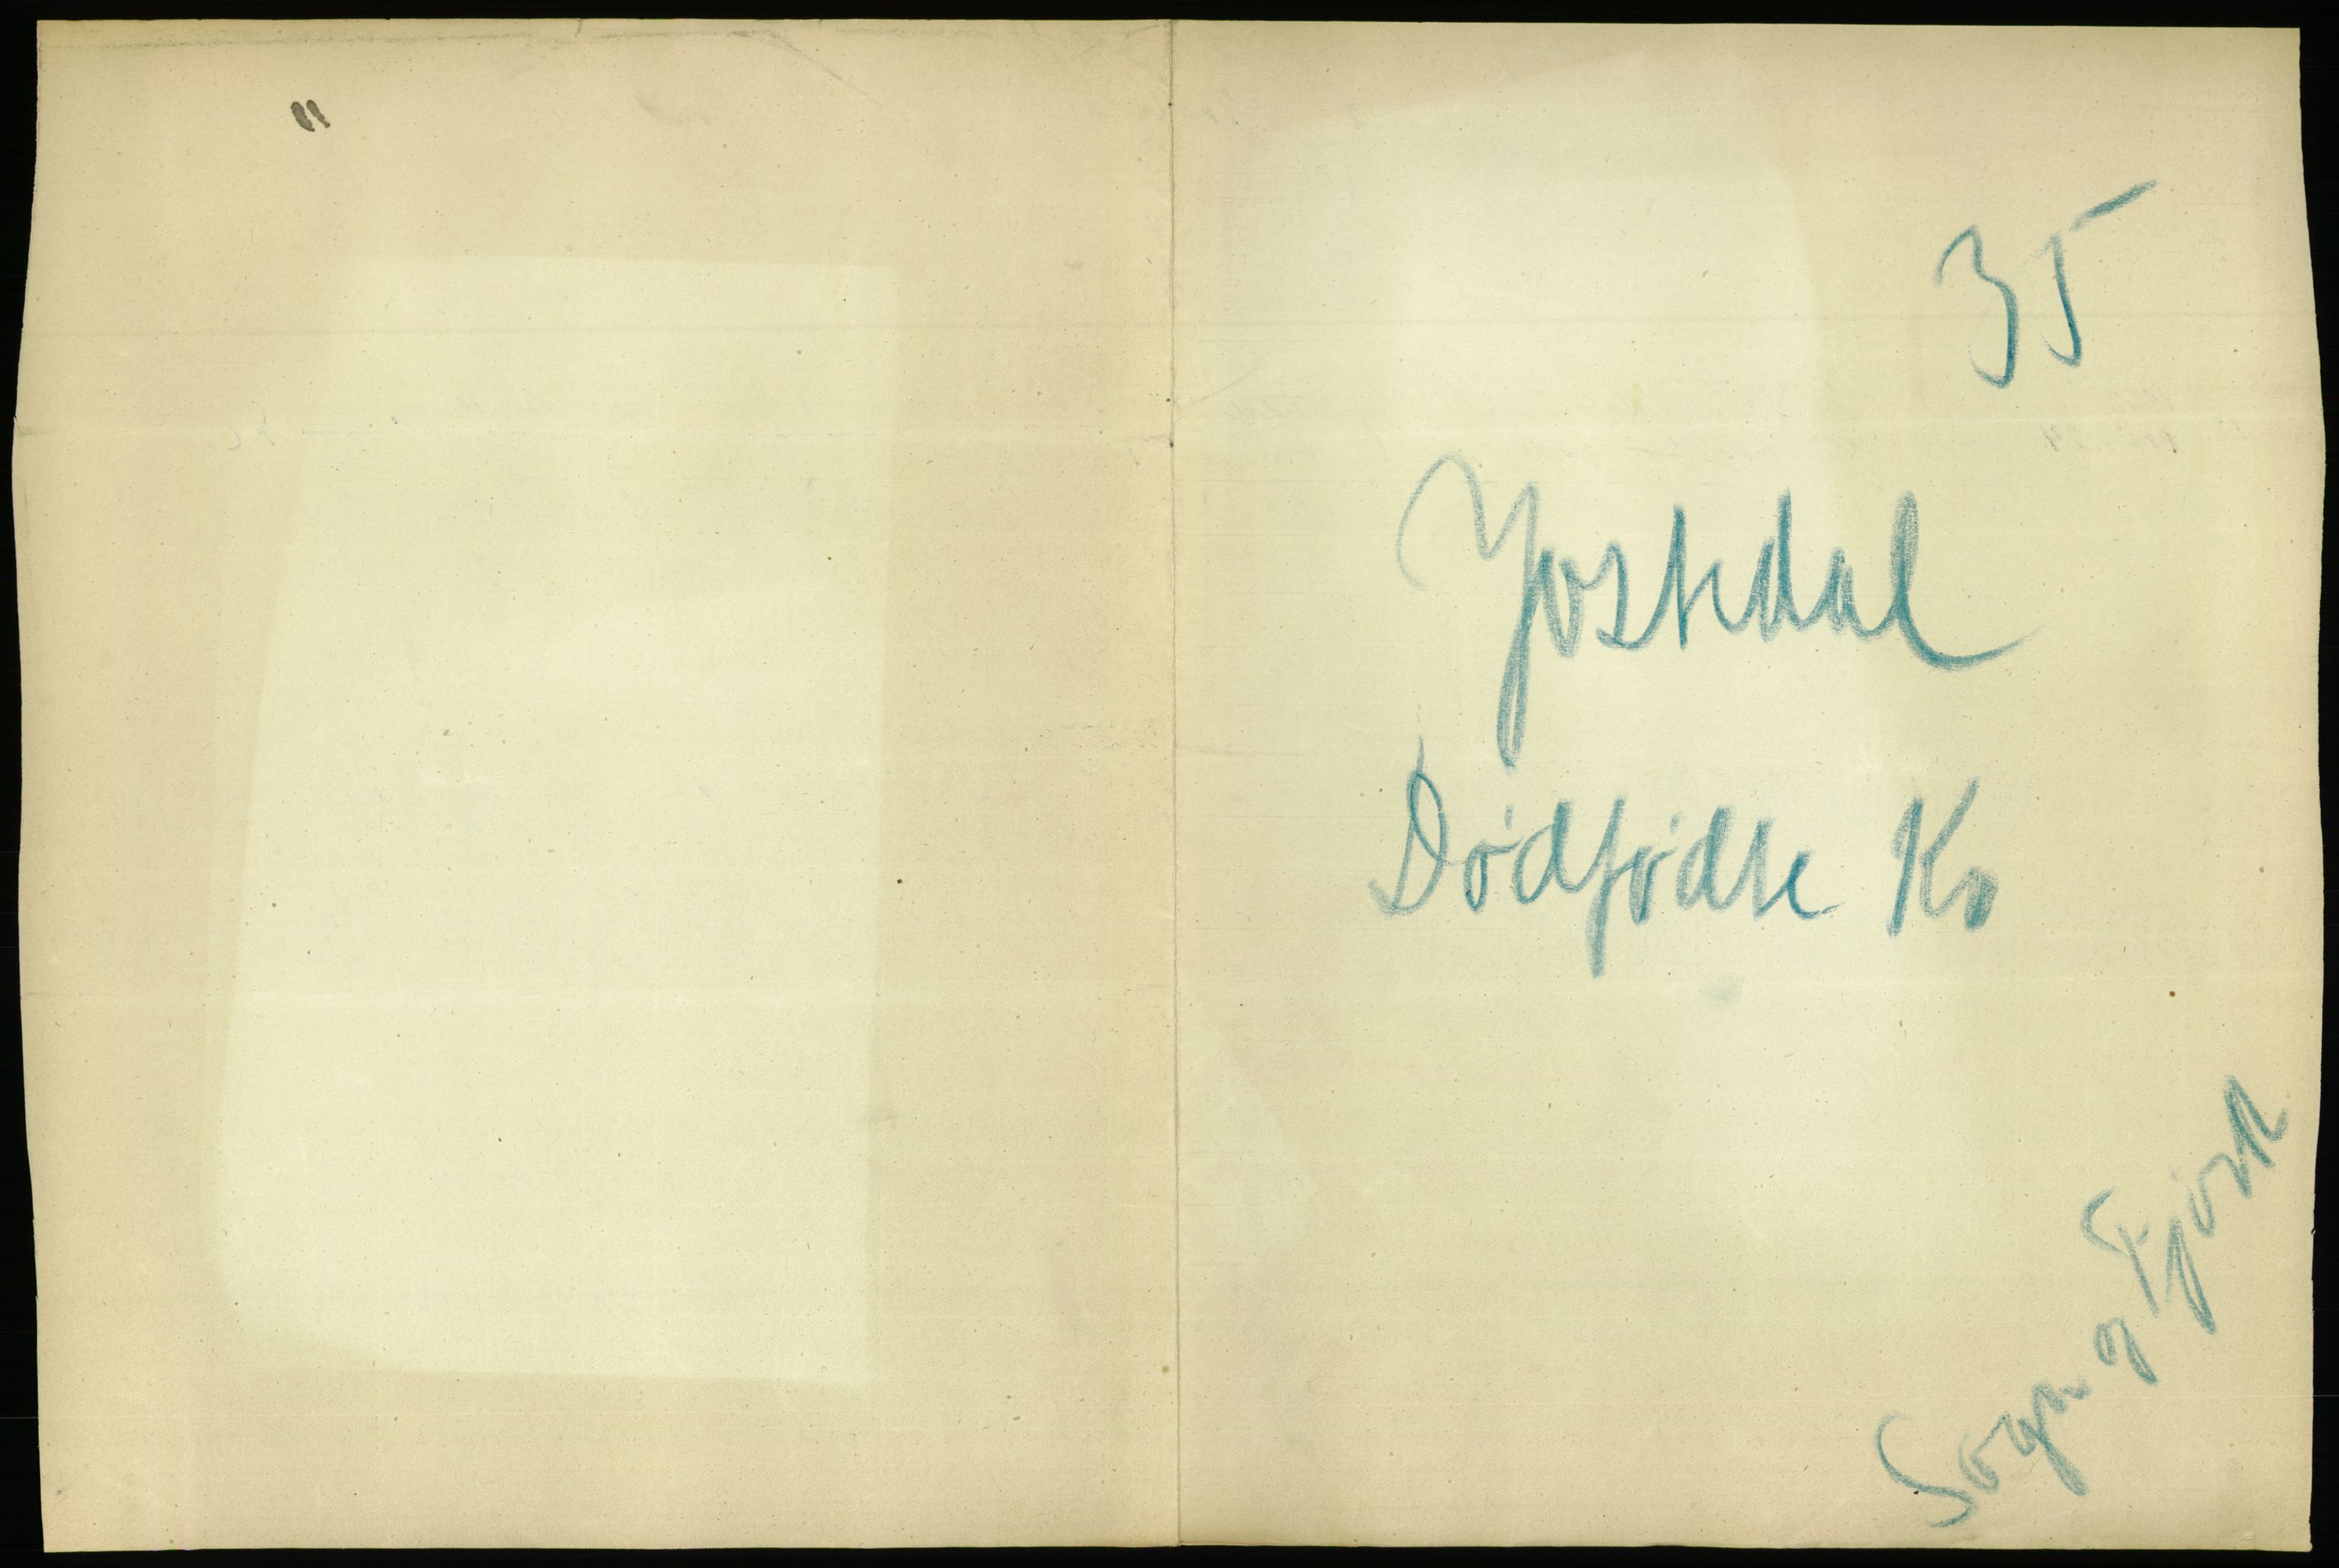 35
Jostedal
Dødfødte Ko
Sogn og Fjord